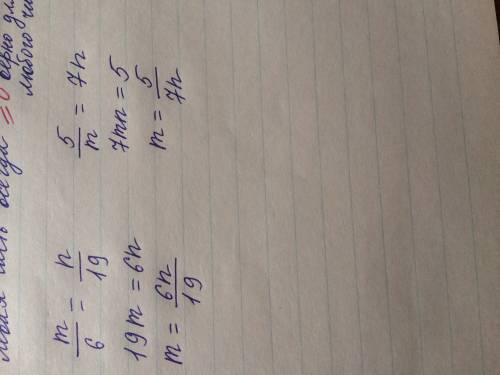 часть всегда ≥ 0 верно
любого
m/6 = n/19
19m = 6n
m = 6n/19
5/m = 7n
7mn = 5
m = 5/7n